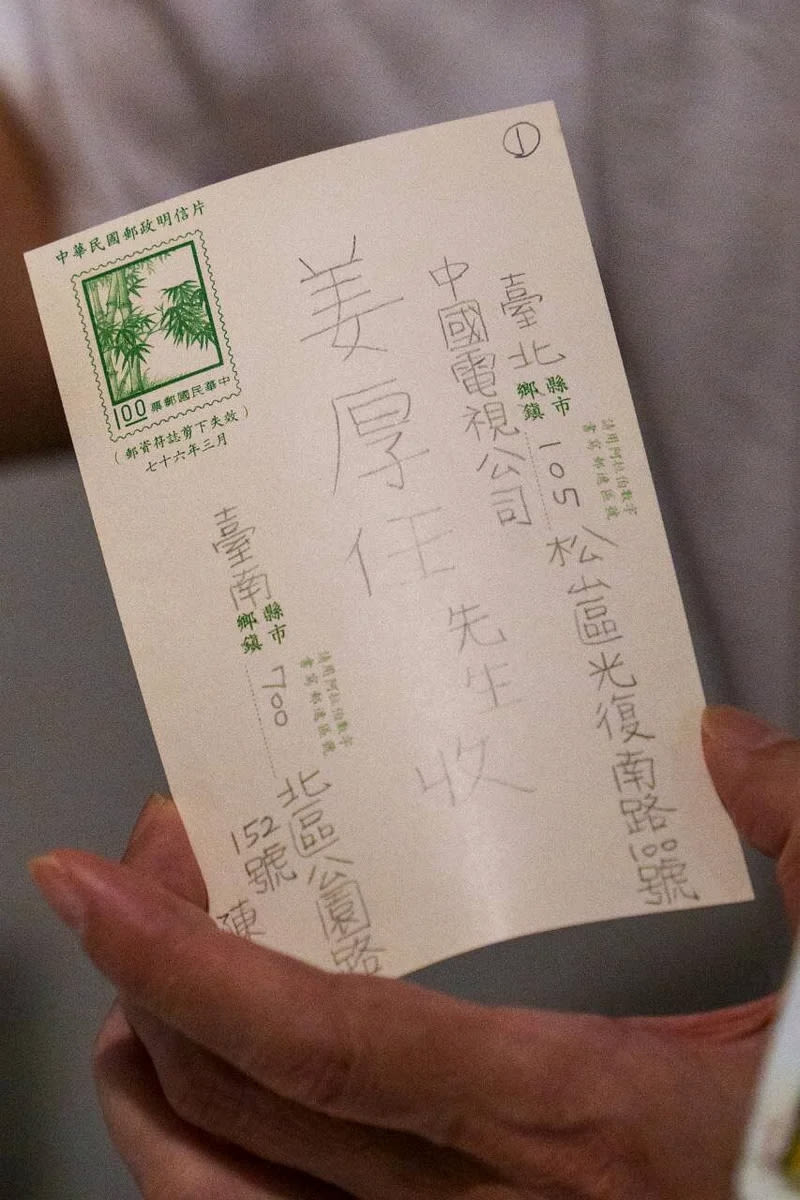 ①
中華民國郵政明信片
中華民國郵票
1.00
(郵資符誌剪下失效)
七十六年三月
臺北縣市鄉鎮
105
請用阿拉伯數字
書寫郵遞區號
松山區光復南路100號
中國電視公司
姜厚任先生收
臺南縣市鄉鎮
700
請用阿拉伯數字
書寫郵遞區號
北區公園路
152號
陳